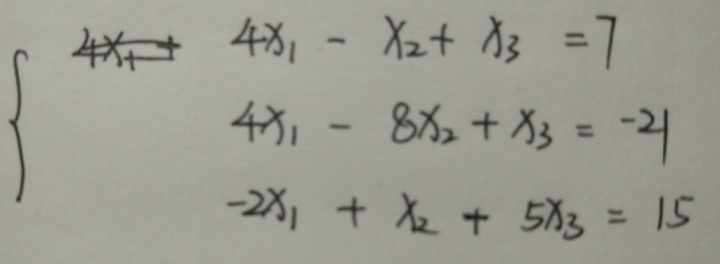 4x₁ - x₂ + x₃ = 7
4x₁ - 8x₂ + x₃ = -21
-2x₁ + x₂ + 5x₃ = 15